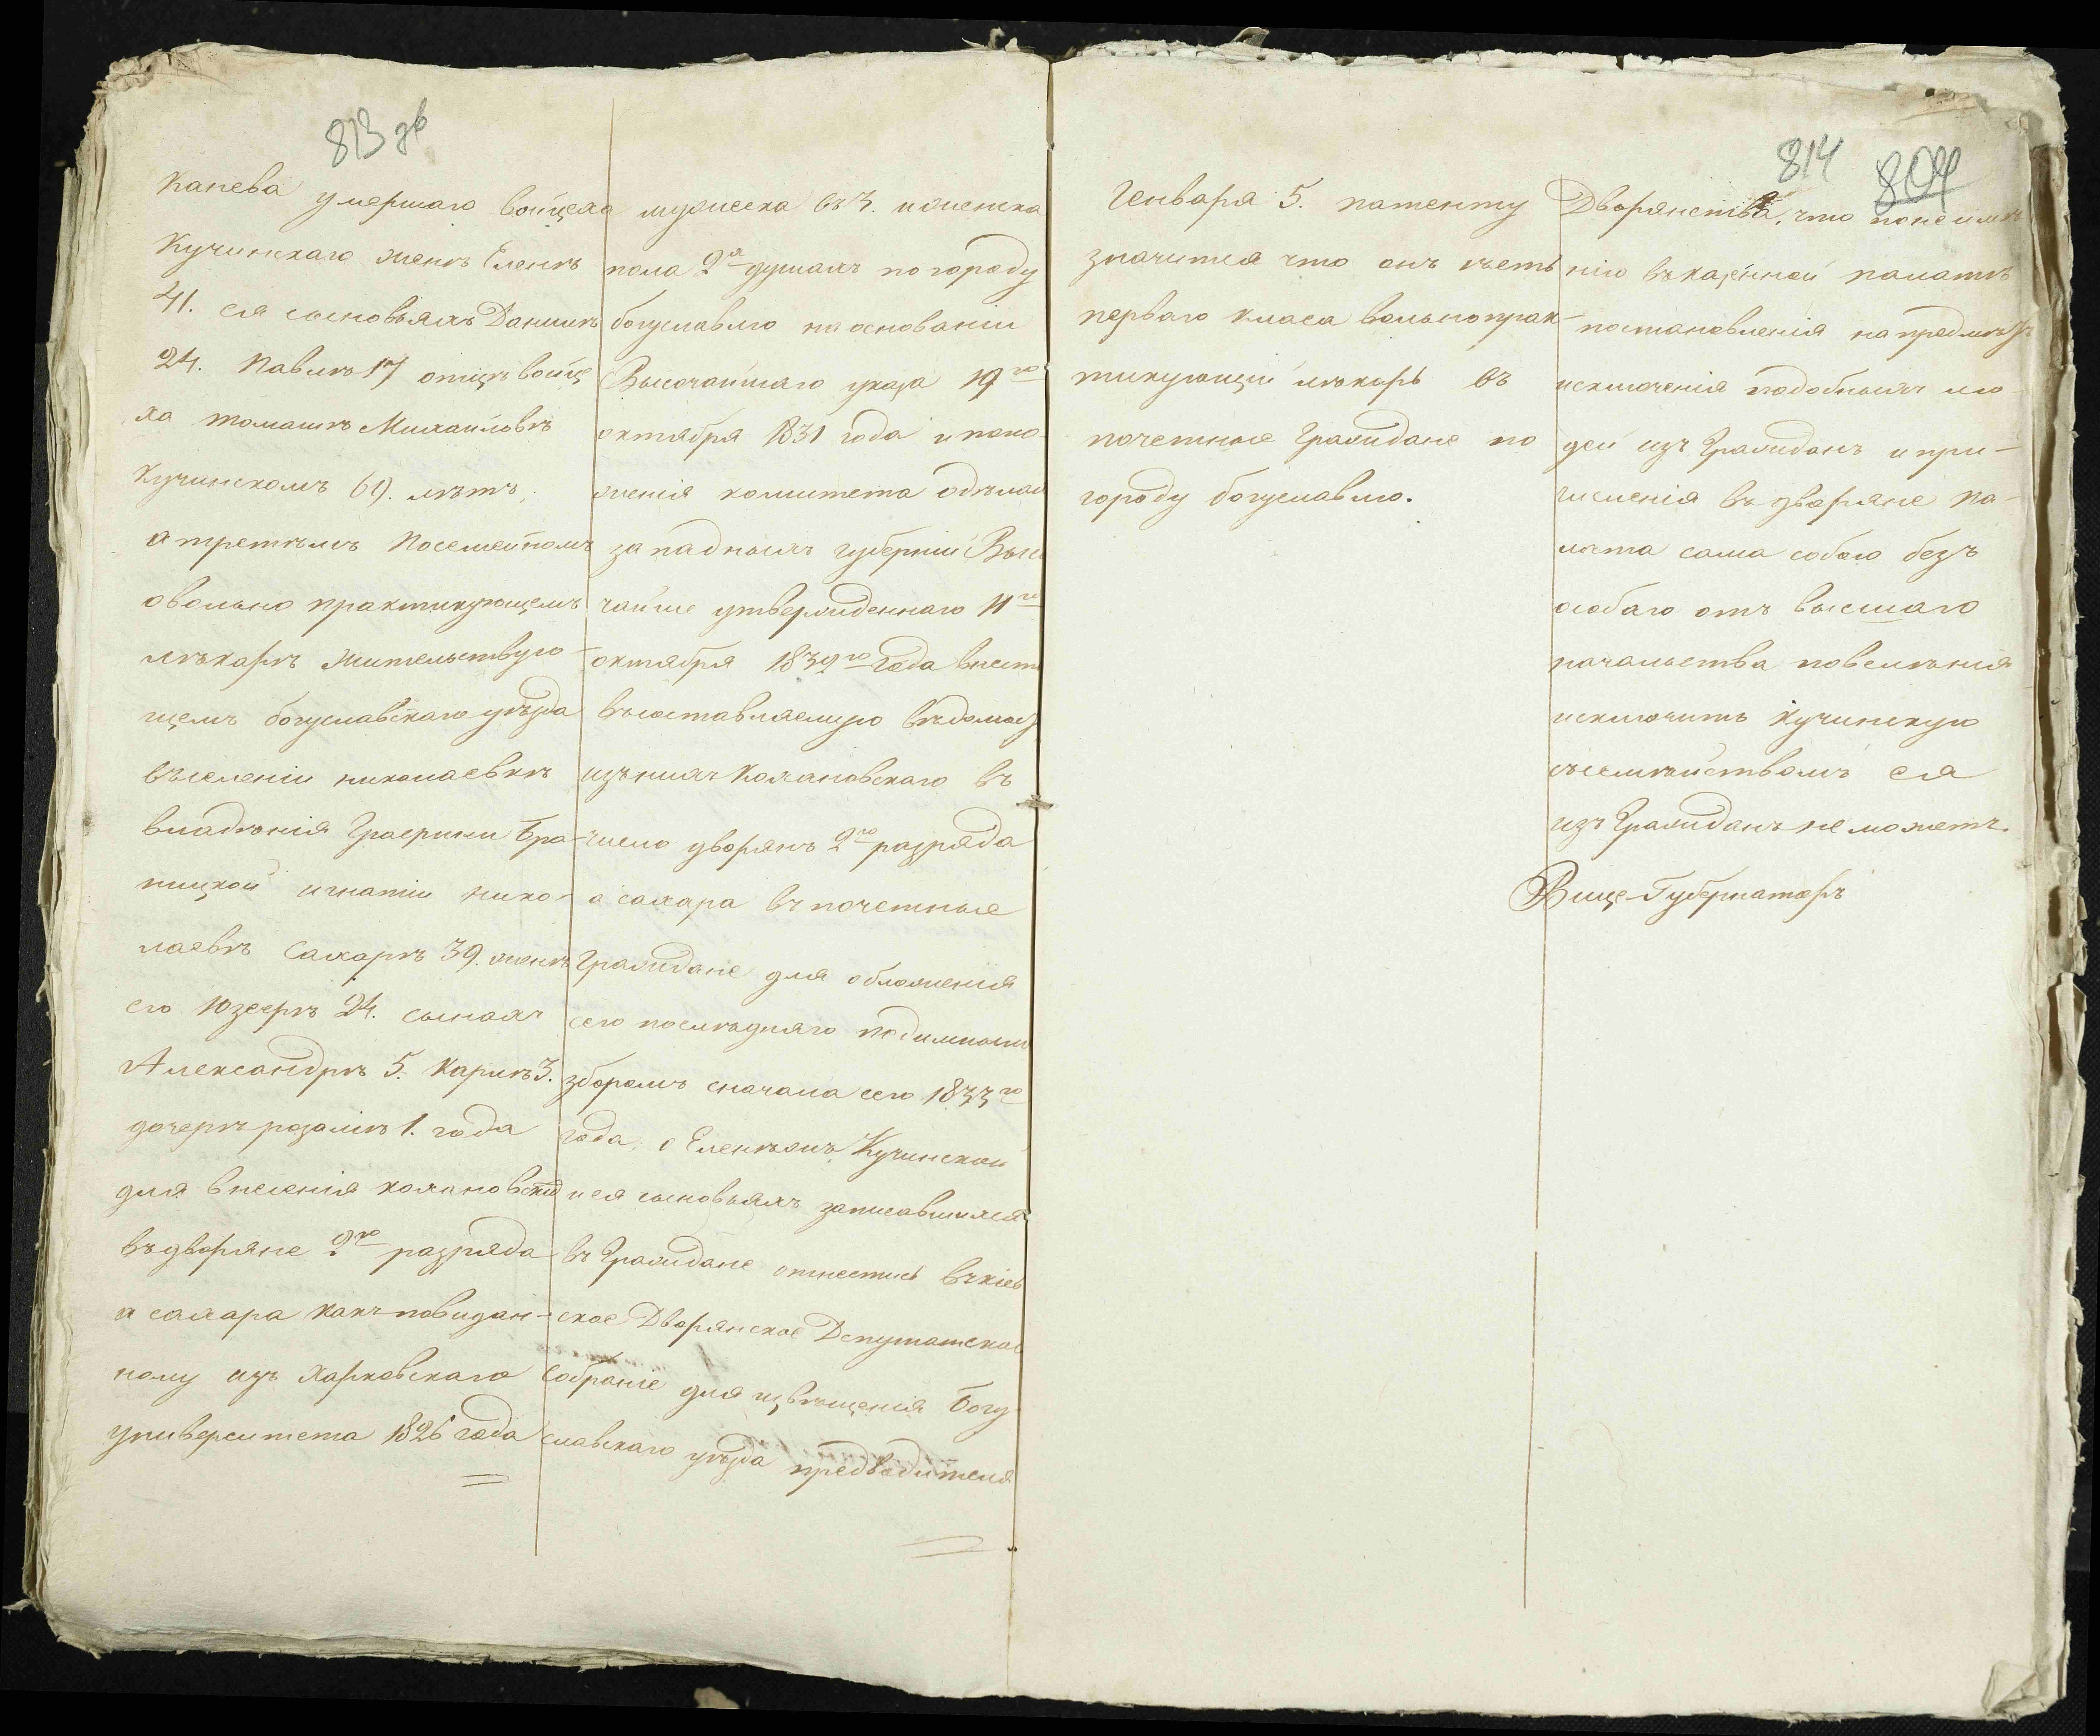 813 зв
Канева умершаго войцеха
Кучинскаго женѣ Еленѣ
41. ея сыновьяхъ Данилѣ
24. Павлѣ 17 отцѣ войце
ха томашѣ Михайловѣ
Кучинскомъ 69. лѣтъ,
а третьемъ Посемейномъ
о вольно практикующемъ
лѣкарѣ жительствую-
щемъ богуславскаго уѣзда
въ селеніи николаевкѣ
владѣнія Графини Бра-
ницкой игнатіи нико-
лаевѣ Сахарѣ 39. женѣ
его Юзефѣ 24. сынахъ
Александрѣ 5. Карлѣ 3.
дочерѣ розаліѣ 1. года
для внесенія
въ дворяне 2го разряда
а сахара какъ по видан-
ному изъ Харковскаго
университета 1826 года
мужеска въ 3. и женска
пола 2я душахъ по городу
богуславлю на основаніи
Высочайшаго указа 19го
октября 1831 года и поло-
женія комитета о дѣлахъ
западныхъ губерній Высо
чайше утвержденнаго 11го
октября года внесть
въ составляемую вѣдомость
изъ нихъ в
число дворянъ 2го разряда
а сахара въ почетные
Граждане для обложенія
сего послѣдняго подымнымъ
зборомъ сначала сего 1833го
года, о Еленѣ Кучинской
и ея сыновьяхъ записавшихся
въ Граждане отнестись въ кіев
ское Дворянское Депутатское
Собраніе для извѣщенія богу
славскаго уѣзда предводителя
814 804
Генваря 5. патенту
значится что онъ есть
перваго класа вольнопрак-
тикующій лѣкарь въ
почетные Граждане по
городу богуславлю.
Дворянства, что по неимѣ
нію въ казенной палатѣ
постановленія на предметъ
исключенія подобныхъ лю-
дей изъ Гражданъ и при-
численія въ дворяне Па-
лата сама собою безъ
особаго отъ высшаго
начальства повелѣнія
исключить Кучинскую
съ семѣйствомъ ея
изъ Гражданъ не можетъ.
Вице-Губернаторъ